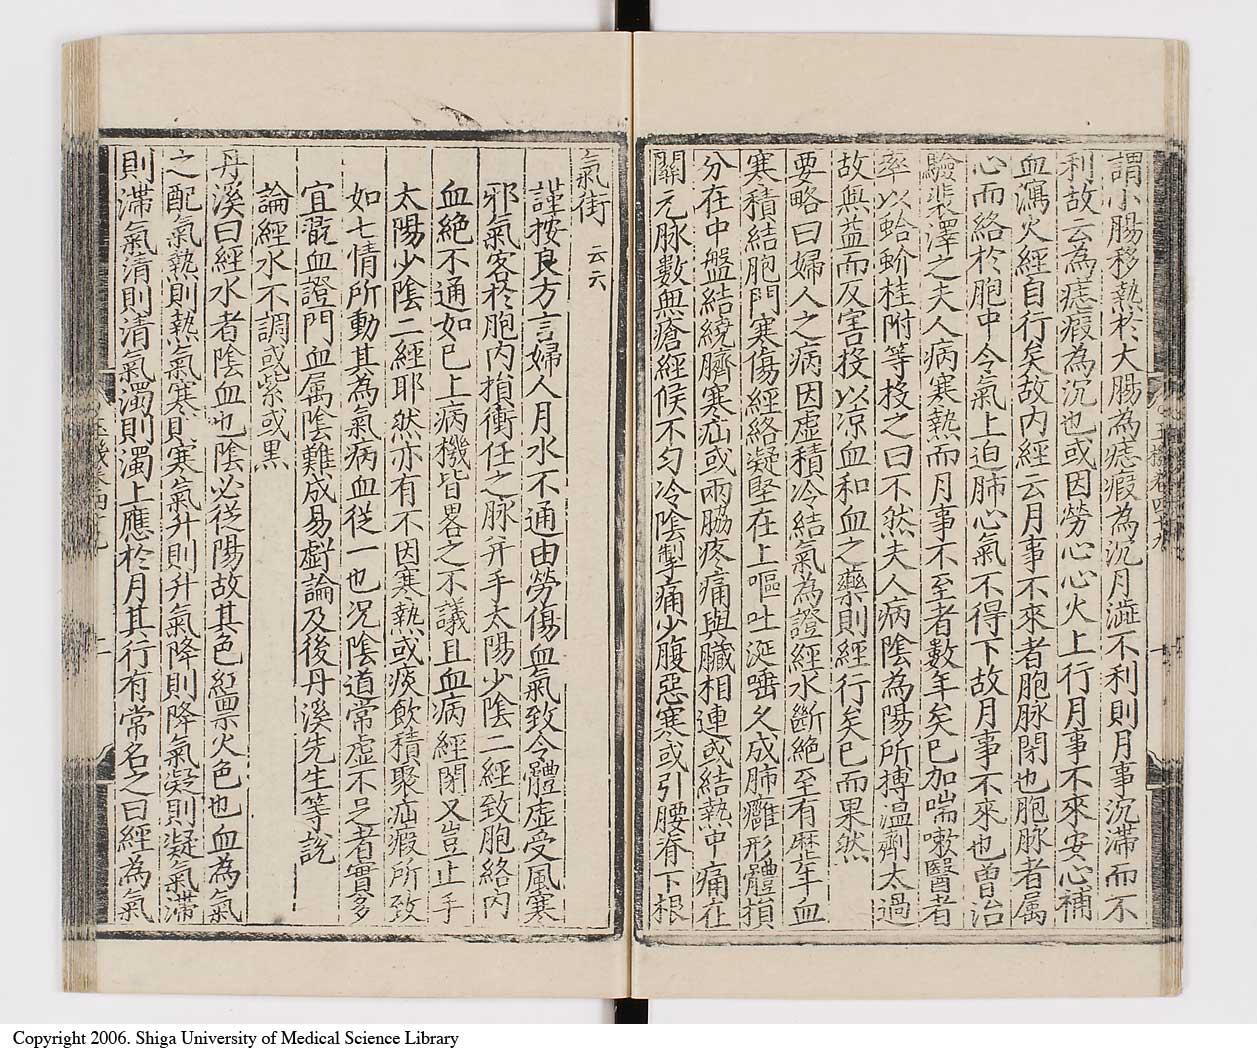 謂小腸移熱於大腸為慮瘕為沉月澁不利則月事沉滯而不
利故云為慮瘕為沉也或因勞心心火上行月事不來安心補
血瀉火經自行矣故内經云月事不來者胞脉閉也胞脉者属
心而絡於胞中今氣上迫肺心氣不得下故月事不來也曽治
驗裴澤之夫人病寒熱而月事不至者數年矣已加喘嗽醫者
率以蛤蚧桂附等投之曰不然夫人病陰為陽所搏温劑太過
故無益而反害投以凉血和血之藥則經行矣已而果然
要略曰婦人之病因虚積冷結氣為證經水斷絶至有歷年血
寒積結胞門寒傷經絡凝堅在上嘔吐涎唾久成肺癰形體損
分在中盤結繞臍寒疝或兩脇疼痛與臟相連或結熱中痛在
關元脉數無瘡經候不匀冷陰掣痛少腹惡寒或引腰脊下根
氣街云云
謹按良方言婦人月水不通由勞傷血氣致令體虚受風寒
邪氣客於胞内損衝任之脉并手太陽少陰二經致胞絡内
血絶不通如已上病機皆畧之不議且血病經閉又豈止手
太陽少陰二經耶然亦有不因寒熱或痰飲積聚疝瘕所致
如七情所動其為氣病血從一也况陰道常虚不足者實多
宜翫血證門血属陰難成易虧論及後丹溪先生等說
論經水不調或紫或黒
丹溪曰經水者陰血也陰必從陽故其色紅禀火色也血為氣
之配氣熱則熱氣寒則寒氣升則升氣降則降氣凝則凝氣滯
則滯氣清則清氣濁則濁上應於月其行有常名之曰經為氣
Copyright 2006. Shiga University of Medical Science Library